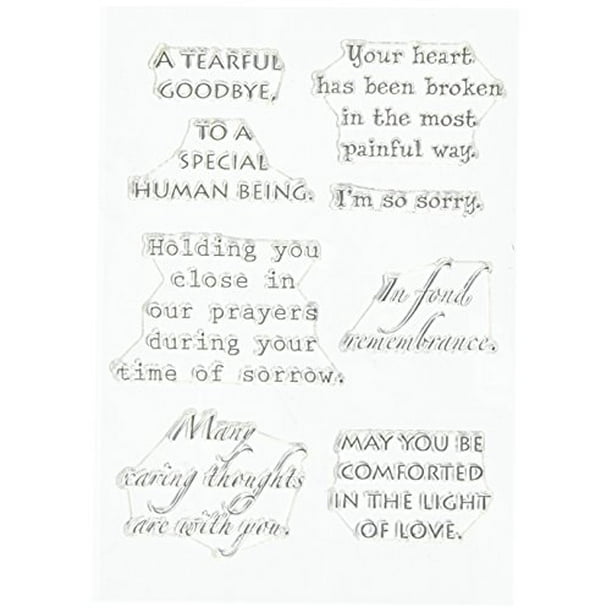 A TEARFUL
GOODBYE,
TO A
SPECIAL
HUMAN BEING.
Your heart
has been broken
in the most
painful way.
I'm so sorry.
Holding you
close in
our prayers
during your
time of sorrow.
In fond
remembrance.
Many
caring thoughts
are with you.
MAY YOU BE
COMFORTED
IN THE LIGHT
OF LOVE.